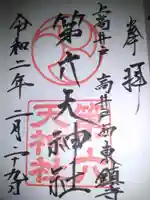 奉拝
上高井戸 高井戸西東鎮
第六天神社
第六
天神社
令和二年二月二十九日